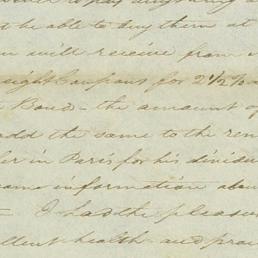 not be able to buy them at
you will receive from
eight Coupons for 2 1/2 %
Bond - the amount of
add the same to the
in Paris for his
same information
I had the pleasure
health and